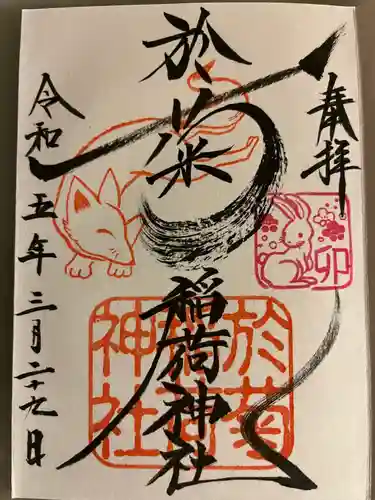 奉拝
於菊
稲荷神社
令和五年三月二十九日
卯
於菊
稲荷
神社